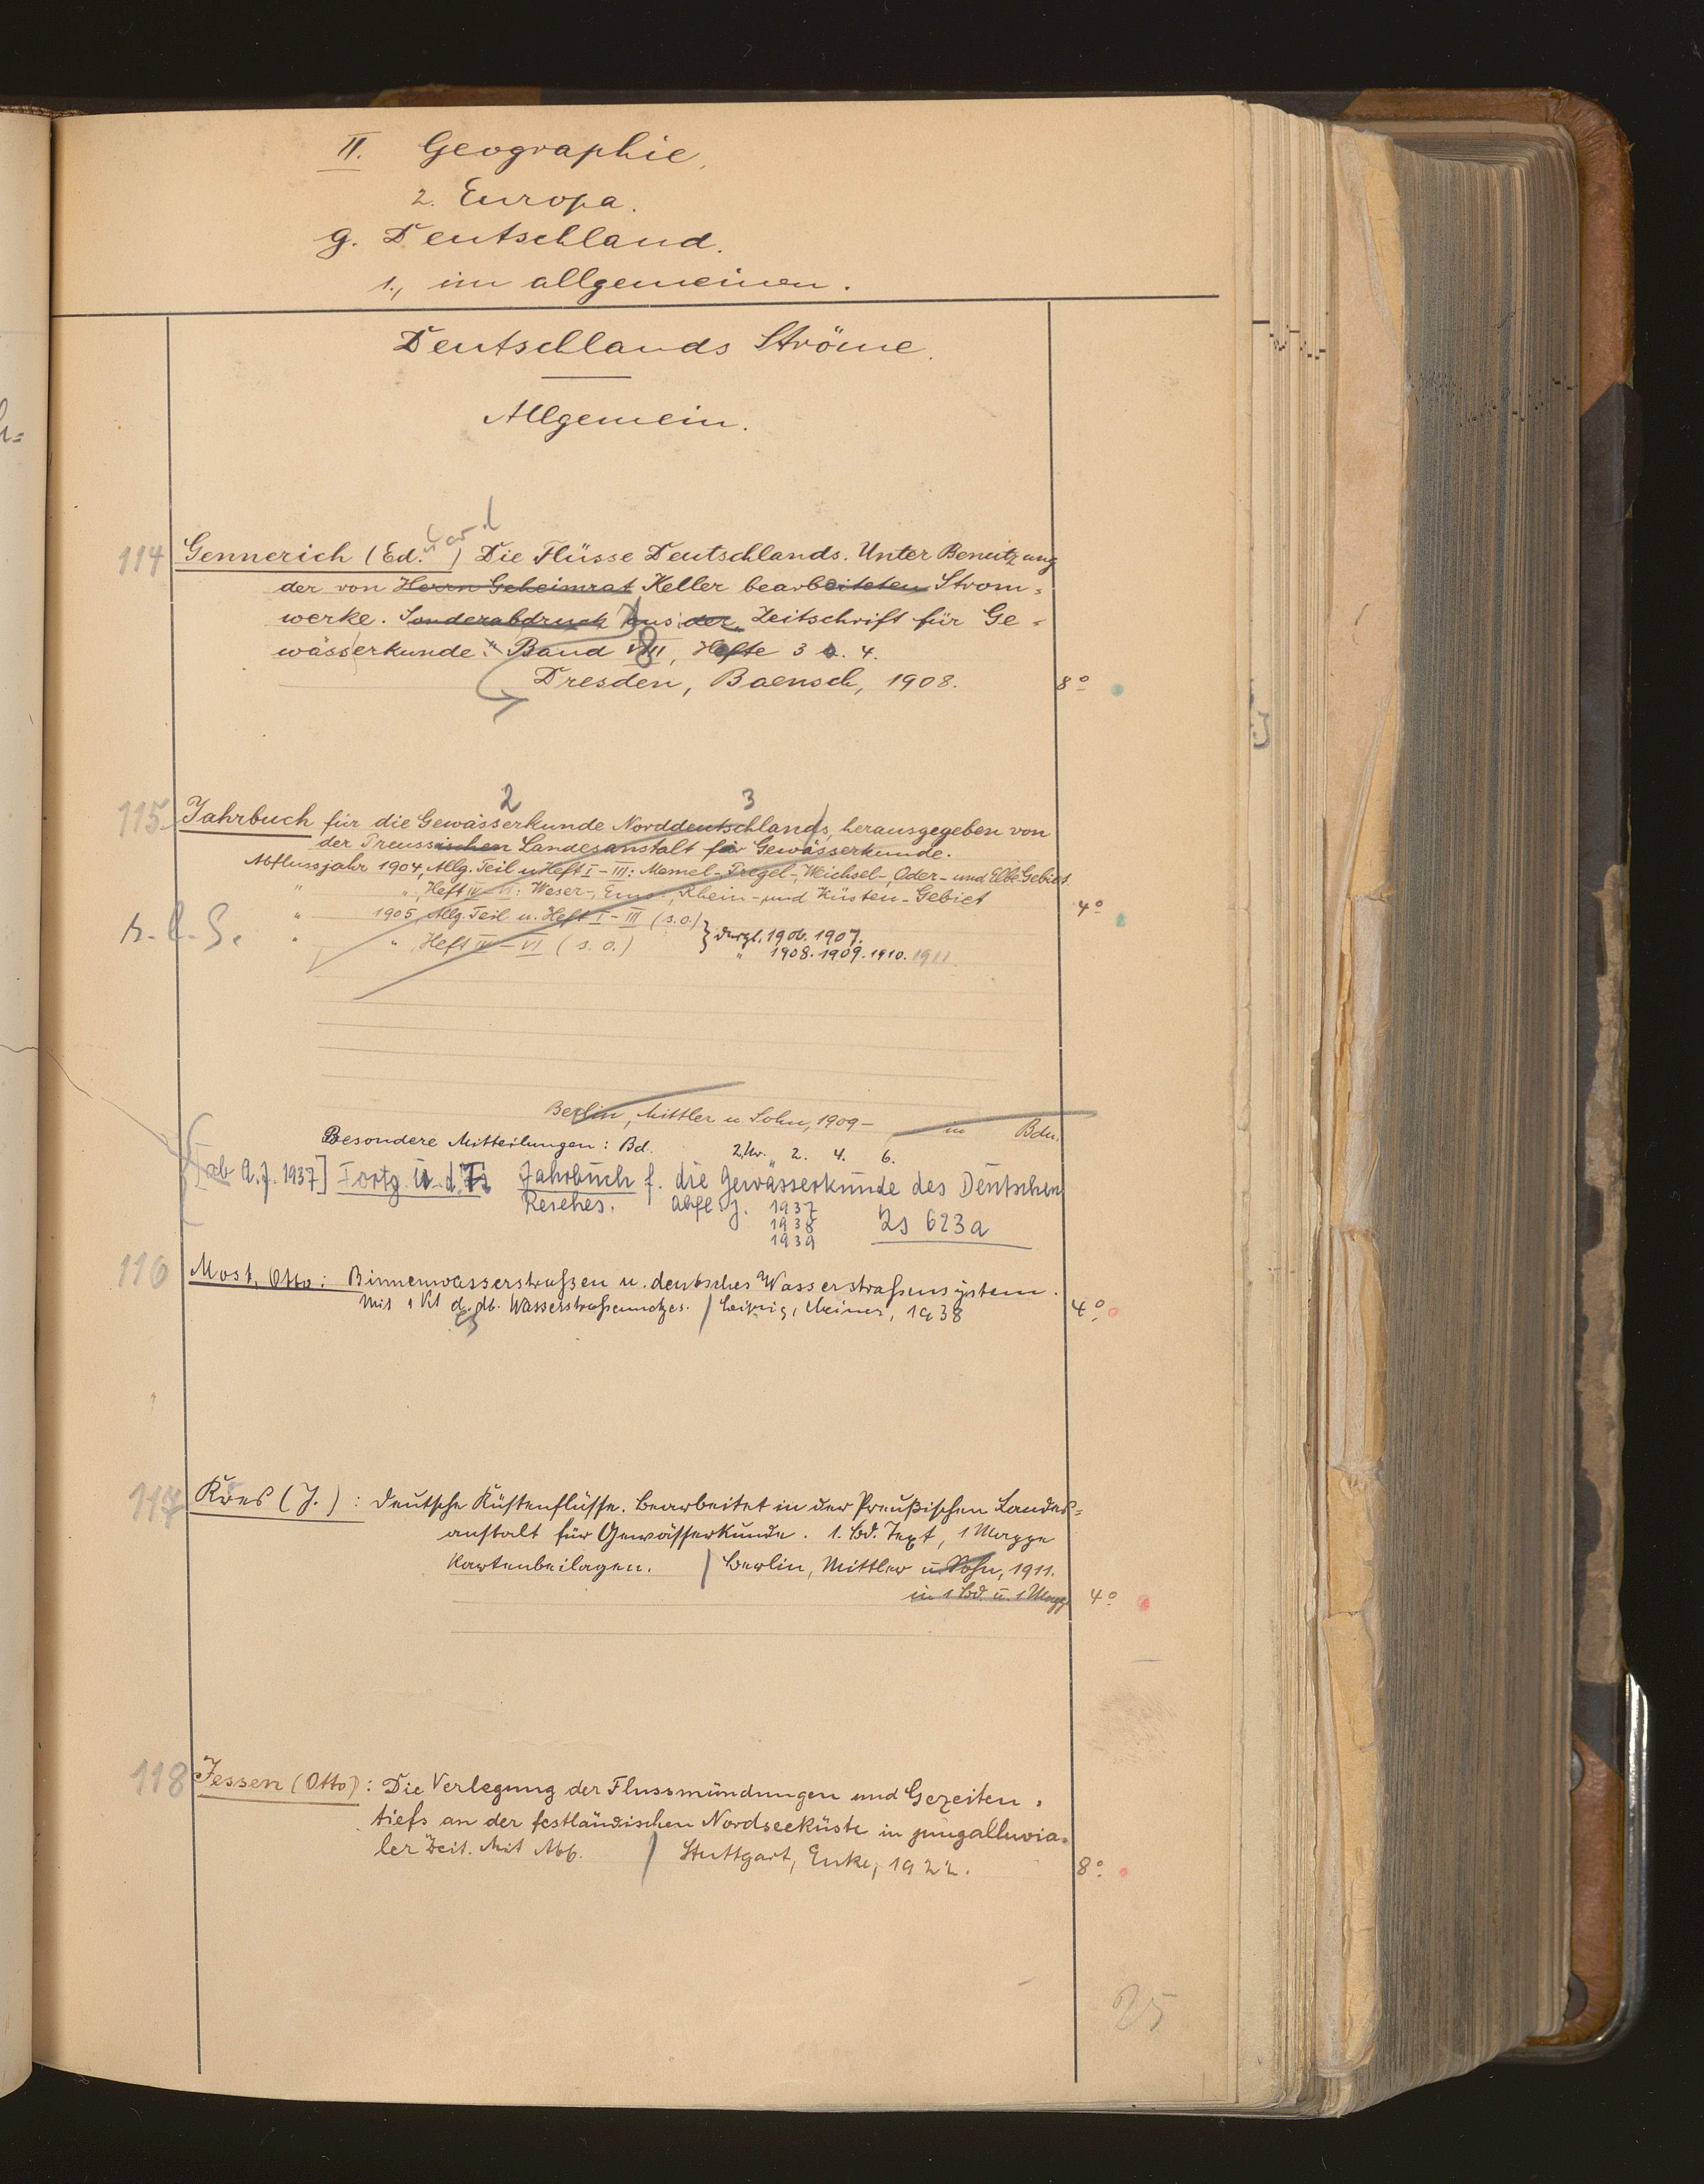 II. Geographie.
2. Europa.
g. Deutschland.
1., im allgemeinen.
Deutschlands Ströme.
Allgemein.
114 Gennerich (Ed.) Die Flüsse Deutschlands. Unter Benutzung
der von Herrn Geheimrat Keller bearbeiteten Strom=
werke. Sonderabdruck aus der Zeitschrift für Ge=
wässerkunde. Band VIII, Hefte 3 u. 4.
8
Dresden, Baensch, 1908.
8º
2 3
115 Jahrbuch für die Gewässerkunde Norddeutschlands, herausgegeben von
der Preussischen Landesanstalt für Gewässerkunde.
Abflussjahr 1904, Allg. Teil u Heft I-III: Memel-, Pregel-, Weichsel-, Oder- und Elbe-Gebiet
" ", Heft IV-VI: Weser-, Ems-, Rhein- und Küsten-Gebiet
4º
" 1905, Allg. Teil u. Heft I-III (s.o.)
" ", Heft IV-VI (s.o.) } dergl. 1906. 1907.
" 1908. 1909. 1910. 1911.
Berlin, Mittler u. Sohn, 1909- in Bdn.
Besondere Mitteilungen: Bd. 2, Nr. 2. 4. 6.
[ab A.J. 1937] Fortg. u. d. T. Jahrbuch f. die Gewässerkunde des Deutschen
Reiches. Abfl. J. 1937
1938 Zs 623a
1939
116 Most, Otto: Binnenwasserstraßen u. deutsches Wasserstraßensystem.
Mit 1 Kt d. dt. Wasserstraßennetzes. / Leipzig, Meiner, 1938
4º
117 Kres (J.): Deutsche Küstenflüsse. Bearbeitet in der Preußischen Landes=
anstalt für Gewässerkunde. 1. Bd. Text, 1 Mappe
Kartenbeilagen. / Berlin, Mittler u. Sohn, 1911.
in 1 Bd. u. 1 Mapp.
4º
118 Jessen (Otto): Die Verlegung der Flussmündungen und Gezeiten=
tiefs an der festländischen Nordseeküste in jungalluvia=
ler Zeit. Mit Abb. / Stuttgart, Enke, 1922.
8º
25